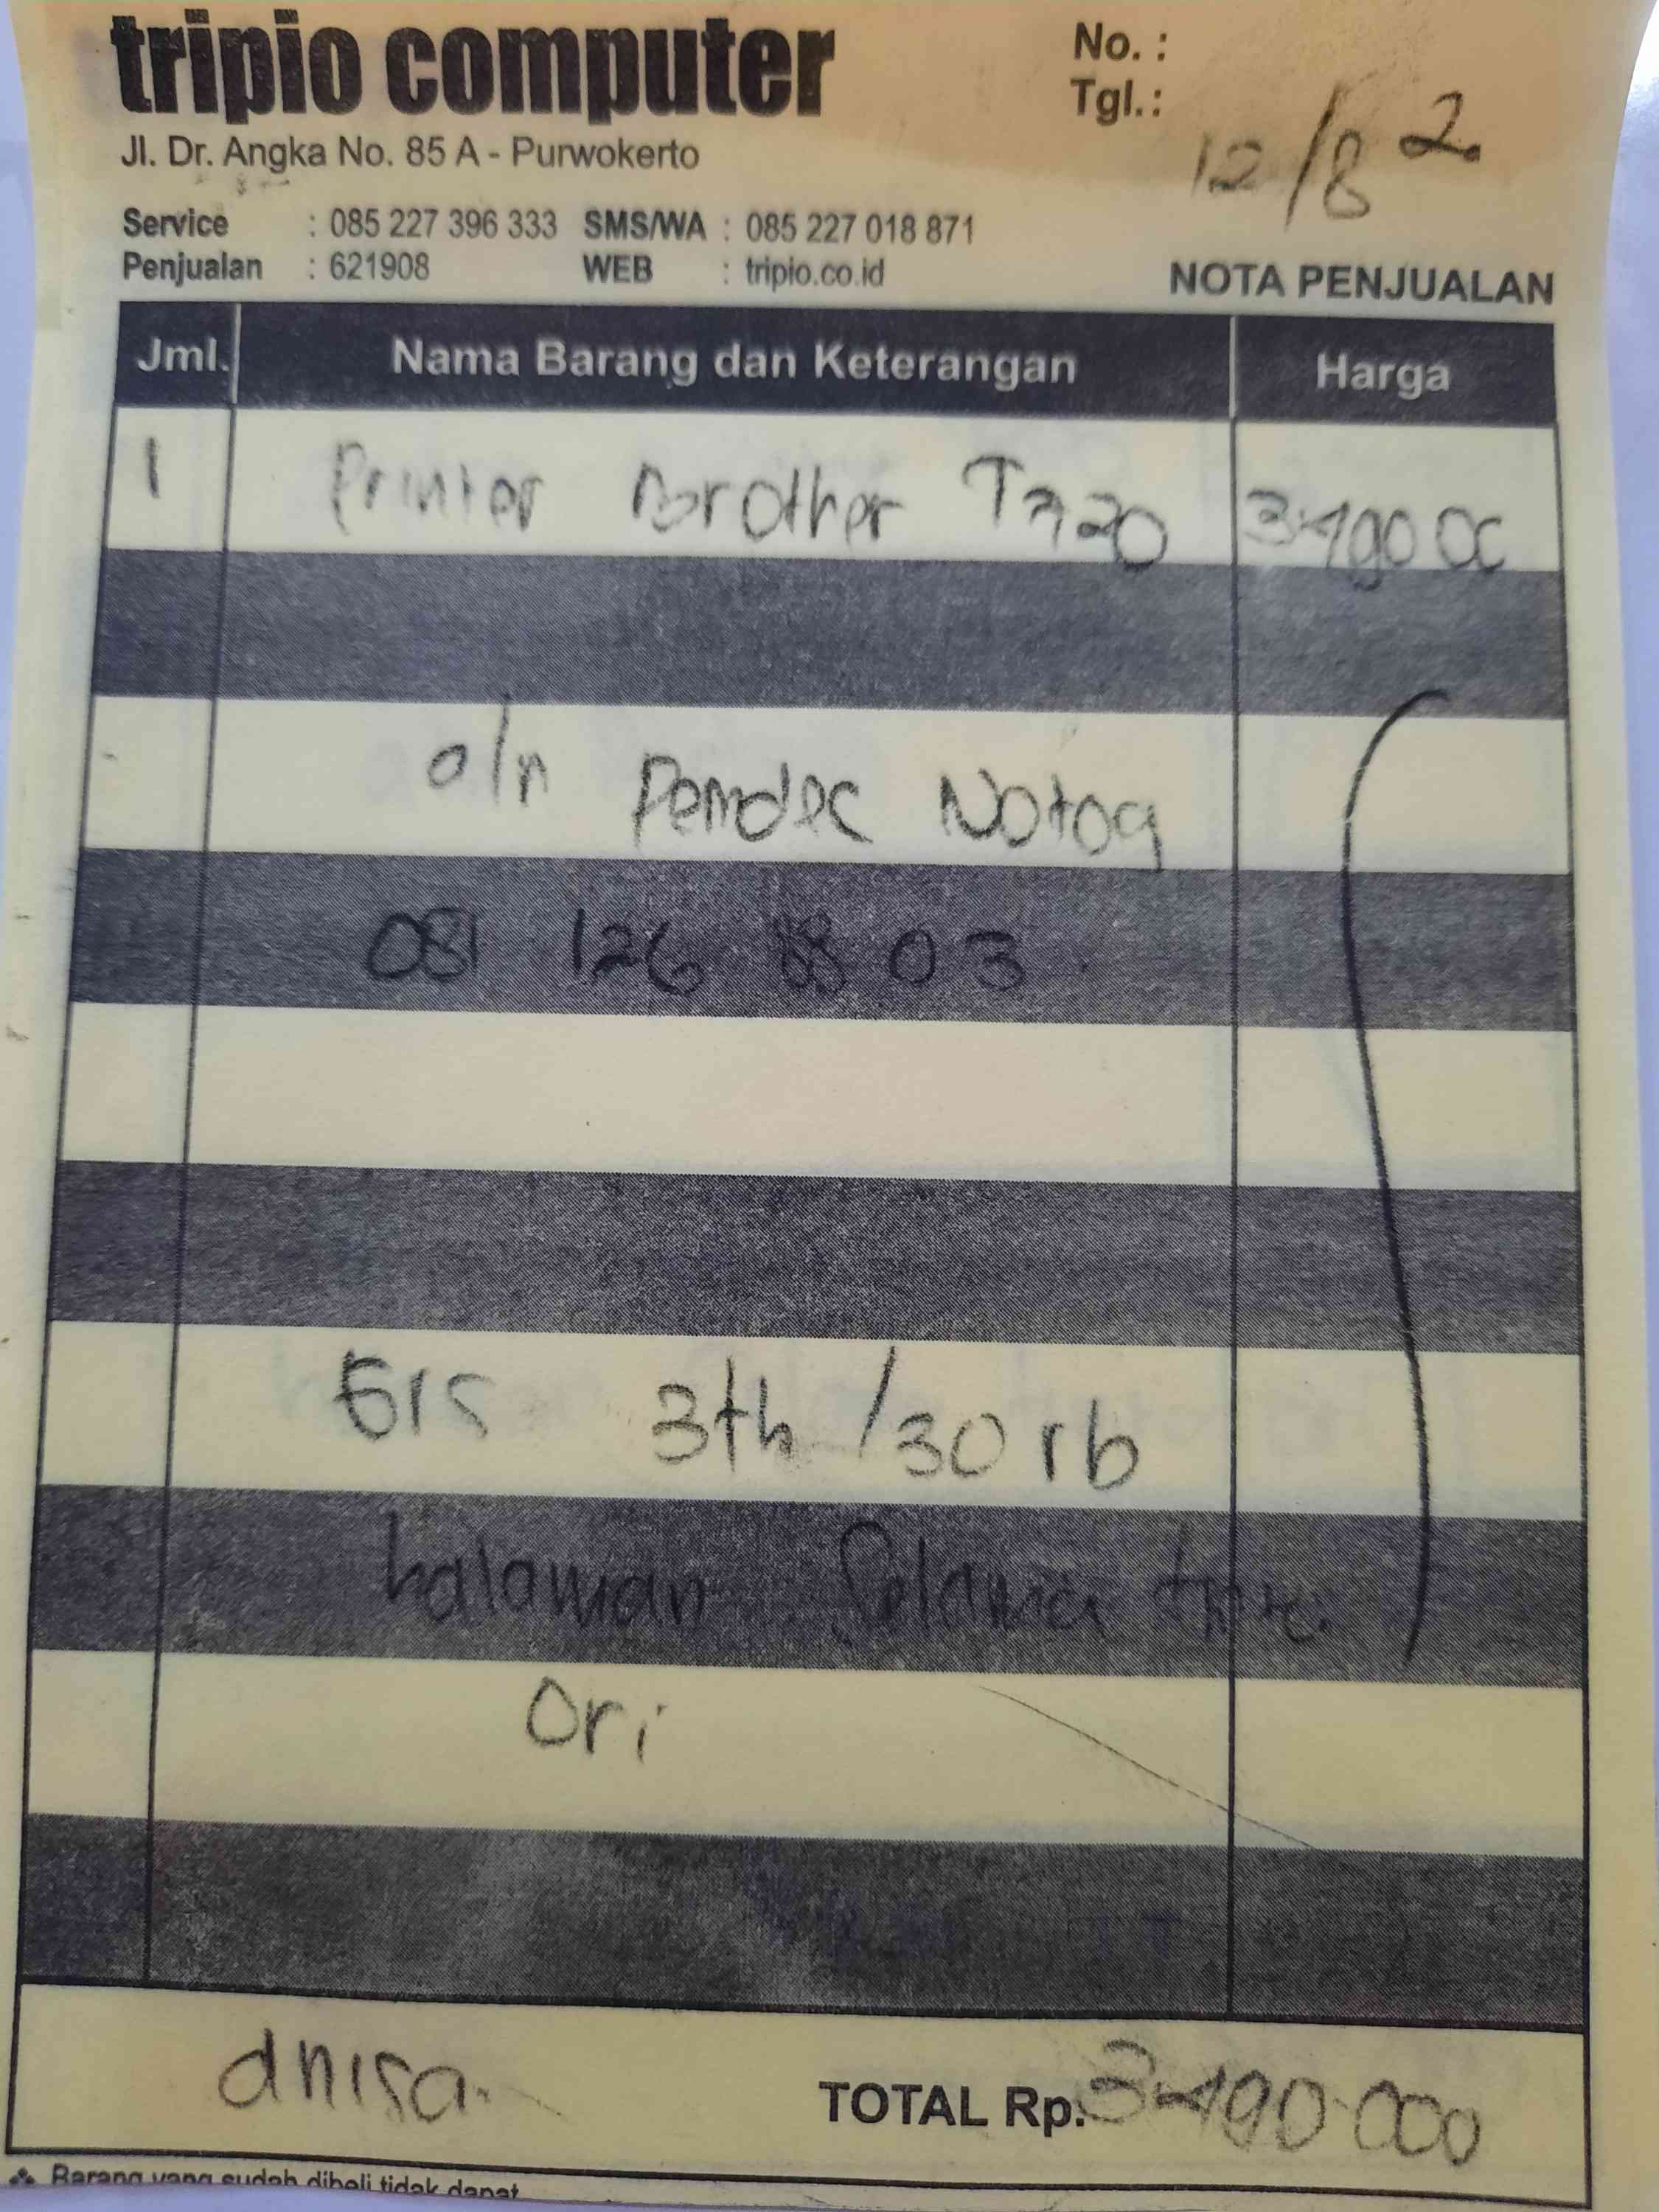 tripio computer
Jl. Dr. Angka No. 85 A - Purwokerto
No. :
Tgl. : 12/8 2
Service : 085 227 396 333 SMS/WA : 085 227 018 871
Penjualan : 621908 WEB : tripio.co.id
NOTA PENJUALAN
Jml. Nama Barang dan Keterangan Harga
1 Printer Brother T720
a/n Pemdes Notog
081 126
3th / 30 rb
halaman
Ori
TOTAL Rp. 3.490.000
Barang yang sudah dibeli tidak dapat